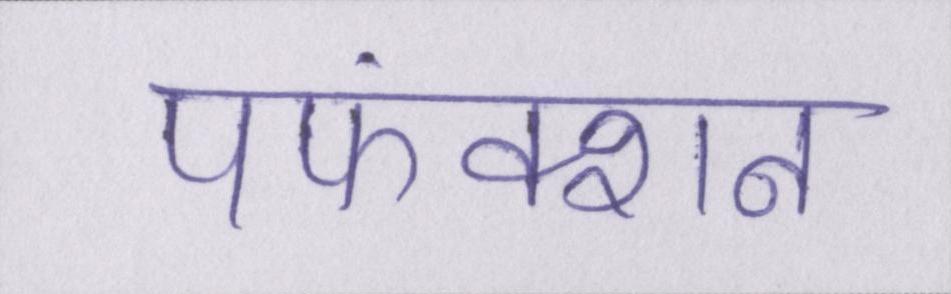 पफंक्शन